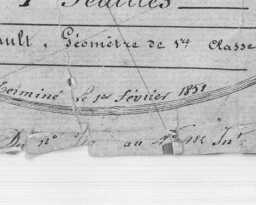 Feuilles
ault, Géomètre de 1re Classe
Terminé le 1er Février 1851
Du n° au N°